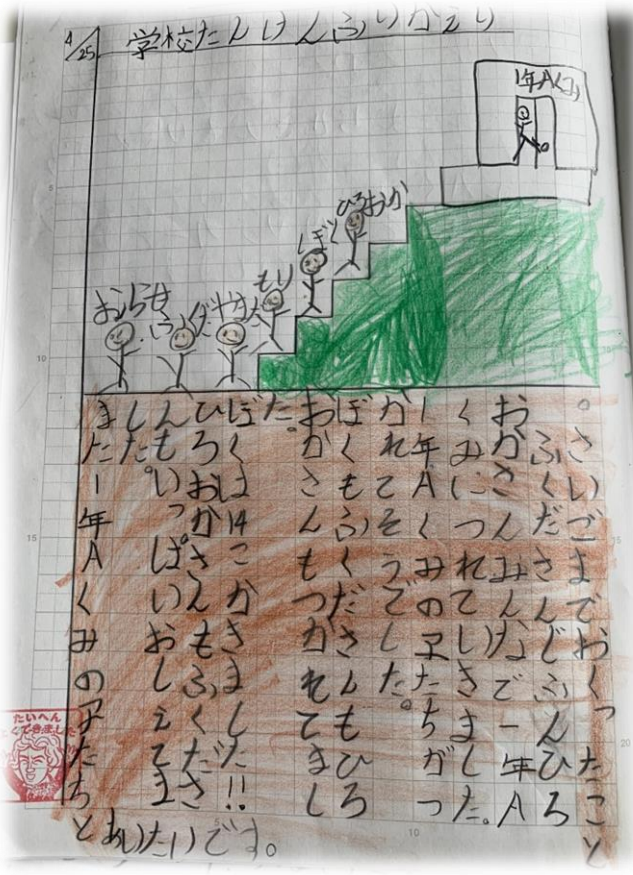 4/25 学校たんけんふりかえり
1年Aくみ
ひろおか
ぼく
もり
。さいごまでおくったこと
ふくださんじふんひろ
おかさんみんなで一年A
くみにつれていきました。
1年Aくみの子たちがつ
かれてそうでした。
ぼくもふくださんもひろ
おかさんもつかれてまし
た。
ぼくは14こかきました!!
ひろおかさんもふくださ
んもいっぱいおしえてま
した。
また1年Aくみの子たちと
あいたいです。
たいへん
よくできました
5
10
15
15
20
5
10